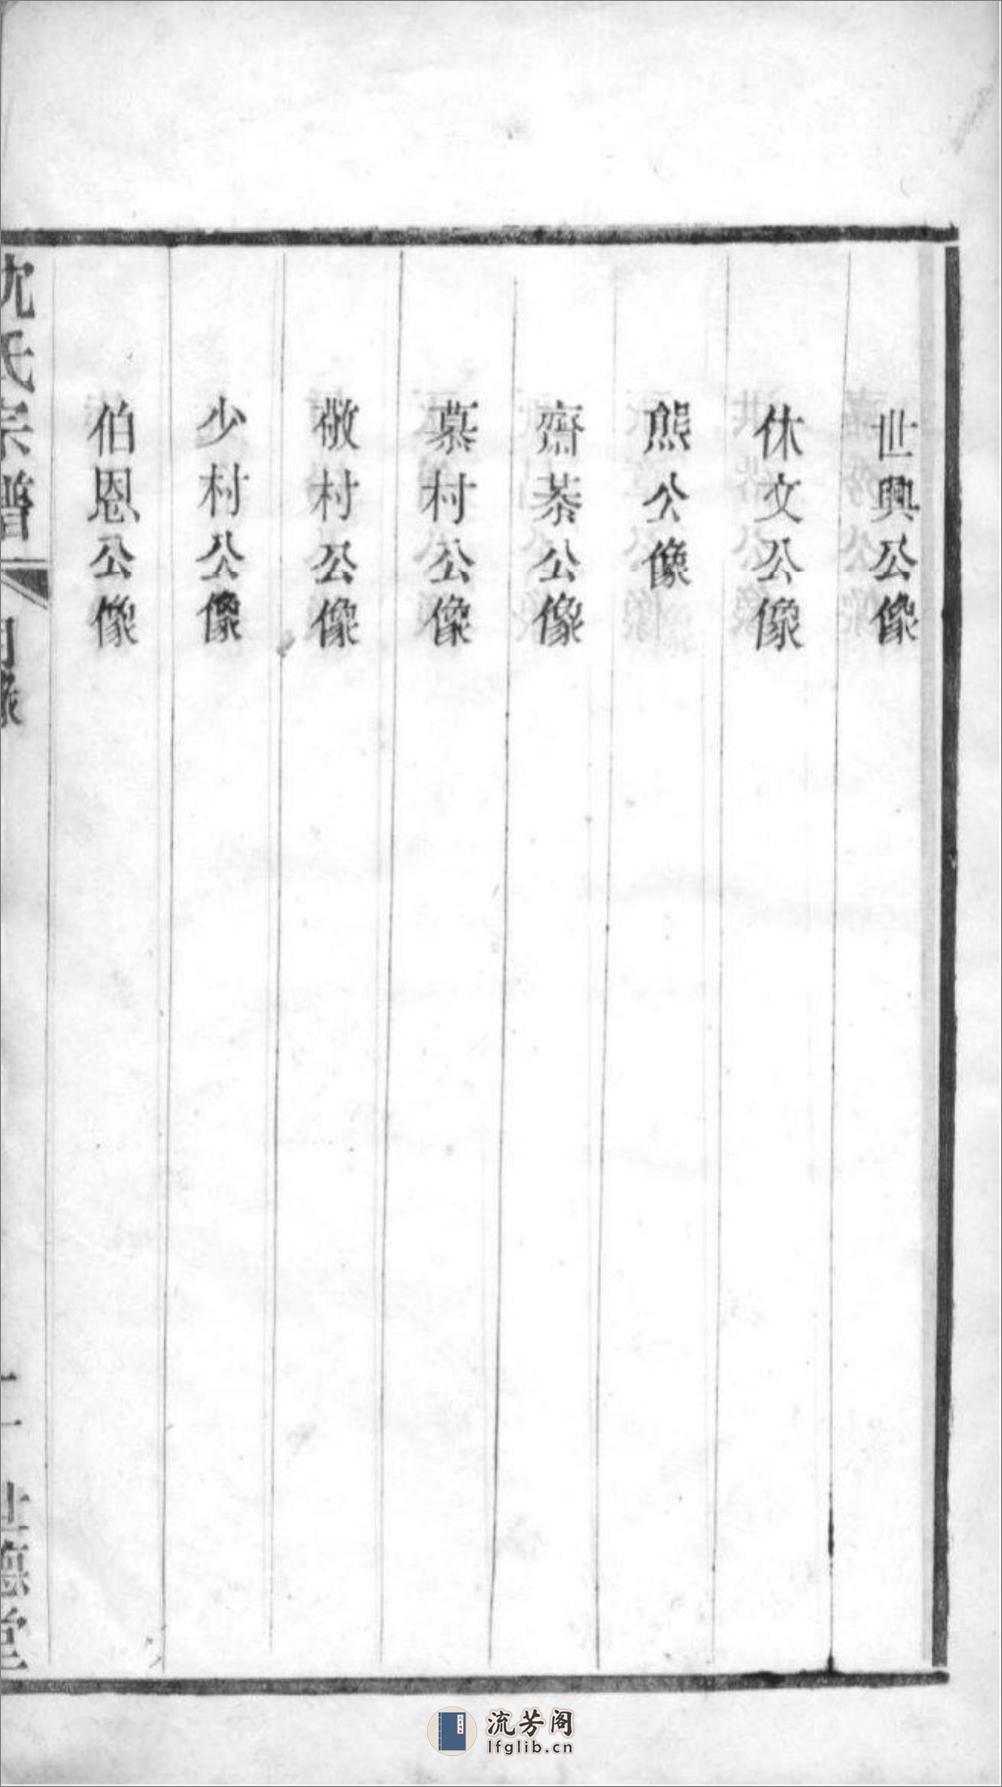 世興公像
休文公像
熊公像
齋茶公像
慕村公像
敬村公像
少村公像
伯恩公像
沈氏宗譜
目錄
世德堂
流芳阁
lfglib.cn